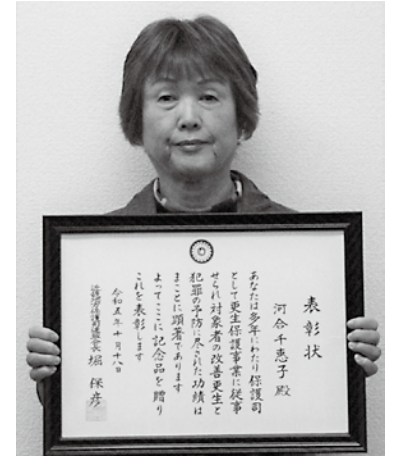 表彰状
河合千恵子 殿
あなたは多年にわたり保護司
として更生保護事業に従事
せられ対象者の改善更生と
犯罪の予防に尽された功績は
まことに顕著であります
よってここに記念品を贈り
これを表彰します
令和五年十月十八日
堀 保彦